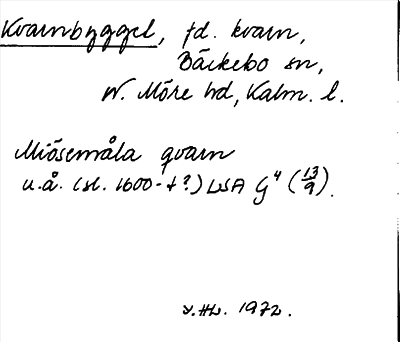 Kvarnbygget, fd. kvarn,
Bäckebo sn,
N. Möre hd, Kalm. l.
Miösemåla qvarn
u.å. (sl. 1600-t?) LSA G⁴ (13/9).
1972.